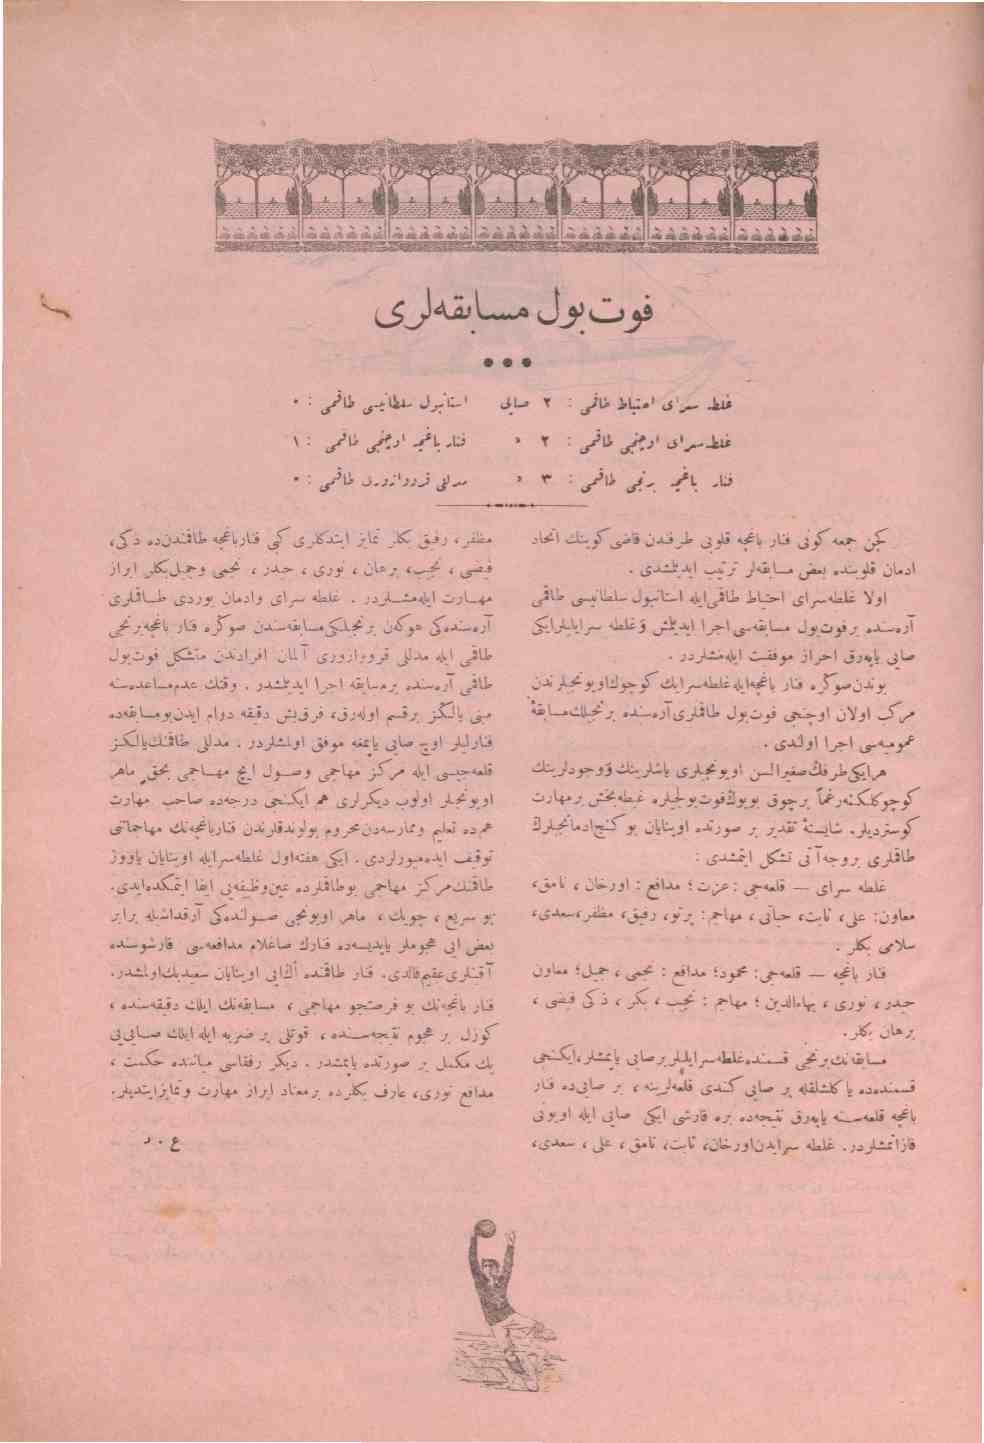 فوت بول مسابقه‌لری
غلطه سرای احتیاط طاقمی : ٢ صایی استانبول سلطانیسی طاقمی : ٠
غلطه‌سرای اوچنجی طاقمی : ٢ » فنار باغچه اوچنجی طاقمی : ١
فنار باغچه برنجی طاقمی : ٣ » مدللی قروازوری طاقمی : ٠
كچن جمعه كونی فنار باغچه قلوبی طرفندن قاضی كوینك اتحاد
ادمان قلوبنده بعض مسابقه‌لر ترتیب ایدیلمشدی .
اولا غلطه‌سرای احتیاط طاقمی‌ایله استانبول سلطانیسی طاقمی
آره‌سنده بر فوت‌بول مسابقه‌سی اجرا ایدیلمش و غلطه سرایلیلر ایكی
صایی یاپه‌رق احراز موفقیت ایله‌مشلردر .
بوندن صوڭره فنار باغچه‌ایله غلطه‌سرایك كوچوك اویونجیلرندن
مركب اولان اوچنجی فوت‌بول طاقملری آره‌سنده برنجیلك مسابقهٔ
عمومیه‌سی اجرا اولندی .
هر ایكی طرفك صغیرالسن اویونجیلری یاشلرینك و وجودلرینك
كوچوكلكنه رغماً برچوق بویوك فوت‌بولجیلره غبطه‌بخش بر مهارت
كوستردیلر. شایستهٔ تقدیر بر صورتده اوینایان بو كنج ادمانجیلرك
طاقملری بروجه آتی تشكل ایتمشدی :
غلطه سرای — قلعه‌جی : عزت ؛ مدافع : اورخان ، نامق،
معاون: علی، ثابت، حیاتی ، مهاجم : پرتو، رفیق، مظفر، سعدی،
سلامی بكلر .
فنار باغچه — قلعه‌جی: محمود؛ مدافع : نجمی ، جمیل؛ معاون
حیدر ، نوری ، بهاءالدین ؛ مهاجم : نجیب ، بكر ، ذكی فیضی ،
برهان بكلر .
مسابقه‌نك برنجی قسمنده غلطه‌سرایلیلر بر صایی یاپمشلر، ایكنجی
قسمنده‌ده یاكلشلقله بر صایی كندی قلعه‌لرینه ، بر صایی‌ده فنار
باغچه قلعه‌سنه یاپه‌رق نتیجه‌ده بره قارشی ایكی صایی ایله اویونی
قازانمشلردر. غلطه سرایدن اورخان، ثابت، نامق ، علی ، سعدی،
مظفر ، رفیق بكلر تمایز ایتدكلری كبی فنارباغچه طاقمندن‌ده ذكی،
فیضی ، نجیب، برهان ، نوری ، حیدر ، نجمی وجمیل بكلر ابراز
مهارت ایله‌مشلردر . غلطه سرای وادمان یوردی طاقملری
آره‌سنده‌كی هوكه‌ن برنجیلكی مسابقه‌سندن صوڭره فنار باغچه برنجی
طاقمی ایله مدللی قروازوری آلمان افرادندن متشكل فوت‌بول
طاقمی آره‌سنده بر مسابقه اجرا ایدیلمشدر . وقتك عدم مساعده‌سنه
مبنی یالكز برقسم اوله‌رق، قرق‌بش دقیقه دوام ایدن بو مسابقه‌ده
فنارلیلر اوچ صایی یاپمغه موفق اولمشلردر . مدللی طاقمنك یالكز
قلعه‌جیسی ایله مركز مهاجمی وصول ایچ مهاجمی بحق ماهر
اویونجیلر اولوب دیكرلری هم ایكنجی درجه‌ده صاحب مهارت
هم‌ده تعلیم وممارسه‌دن محروم بولوندقلرندن فنارباغچه‌نك مهاجماتنی
توقیف ایده‌میورلردی . ایكی هفته اول غلطه‌سرایله اوینایان یاووز
طاقمنك مركز مهاجمی بو طاقملرده عین وظیفه‌یی ایفا ایتمكده ایدی.
بو سریع ، چویك ، ماهر اویونجی صولنده‌كی آرقداشیله برابر
بعض ایی هجوملر یاپدیسه‌ده فنارك صاغلام مدافعه‌سی قارشوسنده
آقنلری عقیم قالدی. فنار طاقمنده اڭ ایی اوینایان سعید بك اولمشدر.
فنار باغچه‌نك بو فرصتجو مهاجمی ، مسابقه‌نك ایلك دقیقه‌سنده ،
كوزل بر هجوم نتیجه‌سنده ، قوتلی بر ضربه ایله ایلك صایی‌یی
پك مكمل بر صورتده یاپمشدر . دیكر رفقاسی میاننده حكمت ،
مدافع نوری، عارف بكلرده برمعتاد ابراز مهارت وتمایز ایتدیلر.
ع . ر